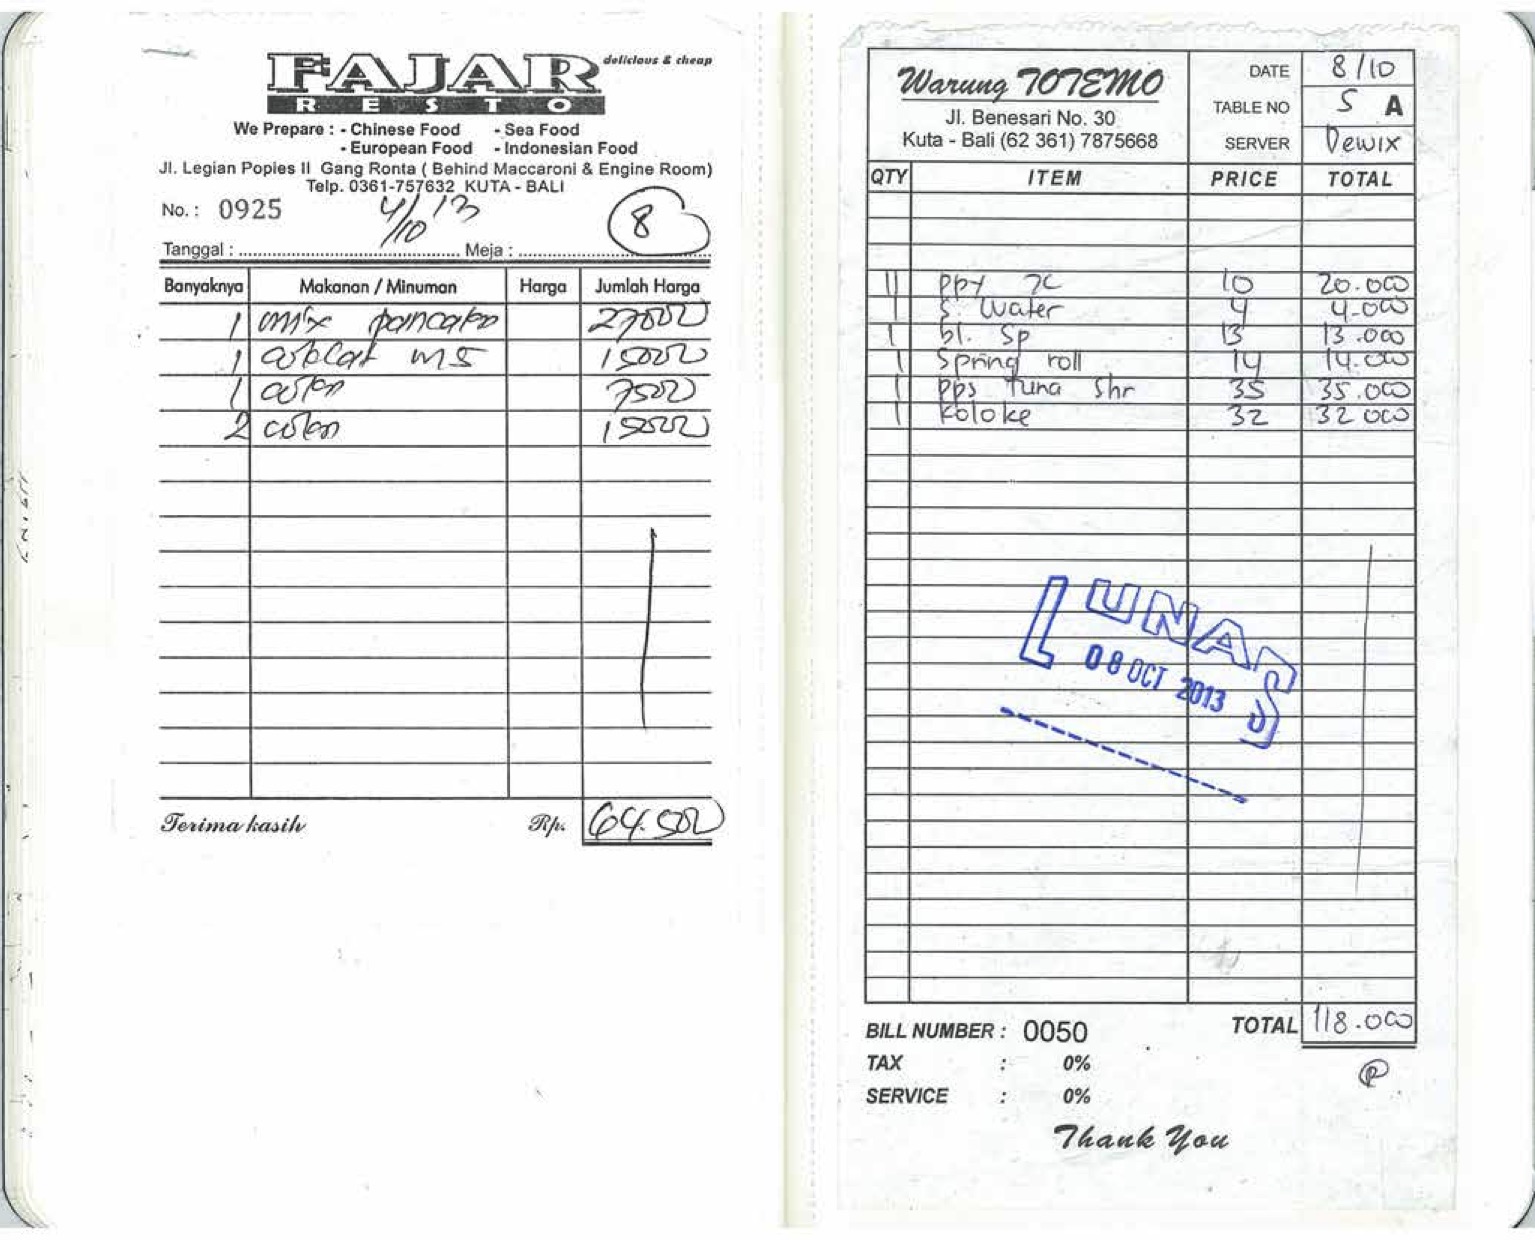 FAJAR delicious & cheap
RESTO
We Prepare : - Chinese Food - Sea Food
- European Food - Indonesian Food
Jl. Legian Popies II Gang Ronta ( Behind Maccaroni & Engine Room)
Telp. 0361-757632 KUTA - BALI
No. : 0925 4/10 13
Tanggal : Meja : 8
Banyaknya Makanan / Minuman Harga Jumlah Harga
1 mix pancake 27000
1 MS 15000
1 7500
2 15000
Terima kasih Rp. 64.500
Warung TOTEMO
Jl. Benesari No. 30
Kuta - Bali (62 361) 7875668
DATE 8/10
TABLE NO 5 A
SERVER Dewix
QTY ITEM PRICE TOTAL
11 ppy 10 20.000
1 S. Water 4 4.000
1 bl. Sp 13 13.000
1 Spring roll 14 14.000
1 pps tuna Shr 35 35.000
1 koloke 32 32 000
LUNAS
08 OCT 2013
TOTAL 118.000
BILL NUMBER : 0050
TAX : 0%
SERVICE : 0%
Thank You